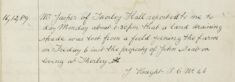 16/12/89 Mr Jasper of Thorley Hall reported to me to
day Monday about 2.30pm that a Land draining
spade was lost from a field nearing the farm
on Friday 6 inst the property of John
living at Thorley St
J Knight P.C. No 46